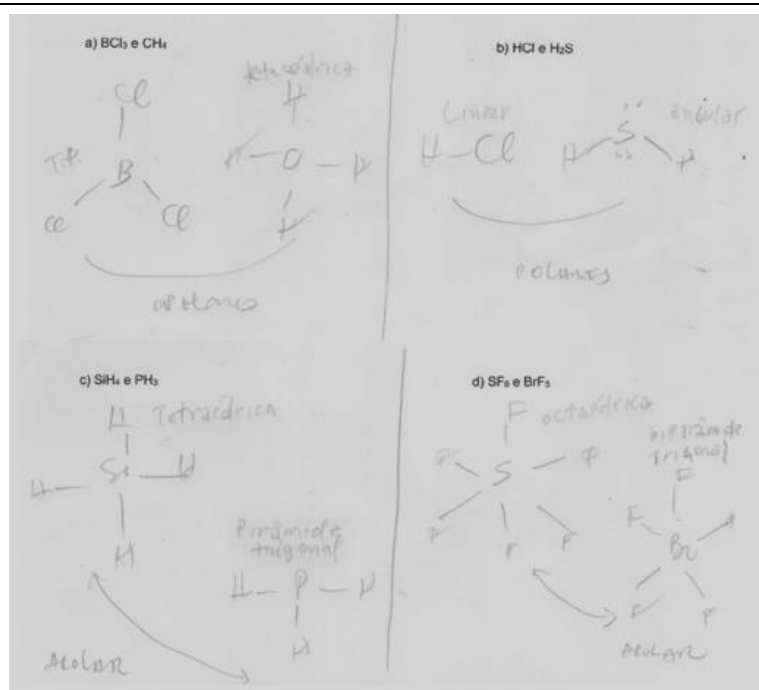 a) BCl₃ e CH₄
tetraédrica
Cl
H
T.P.
B
H — C — H
Cl
Cl
H
apolares
b) HCl e H₂S
Linear
angular
H — Cl
H
S
H
POLARES
c) SiH₄ e PH₃
H
Tetraédrica
H — Si — H
H
Pirâmide
trigonal
H — P — H
H
APOLAR
d) SF₆ e BrF₅
F
octaédrica
F
S
F
F
F
F
bipirâmide
trigonal
F
F
Br
F
F
APOLAR